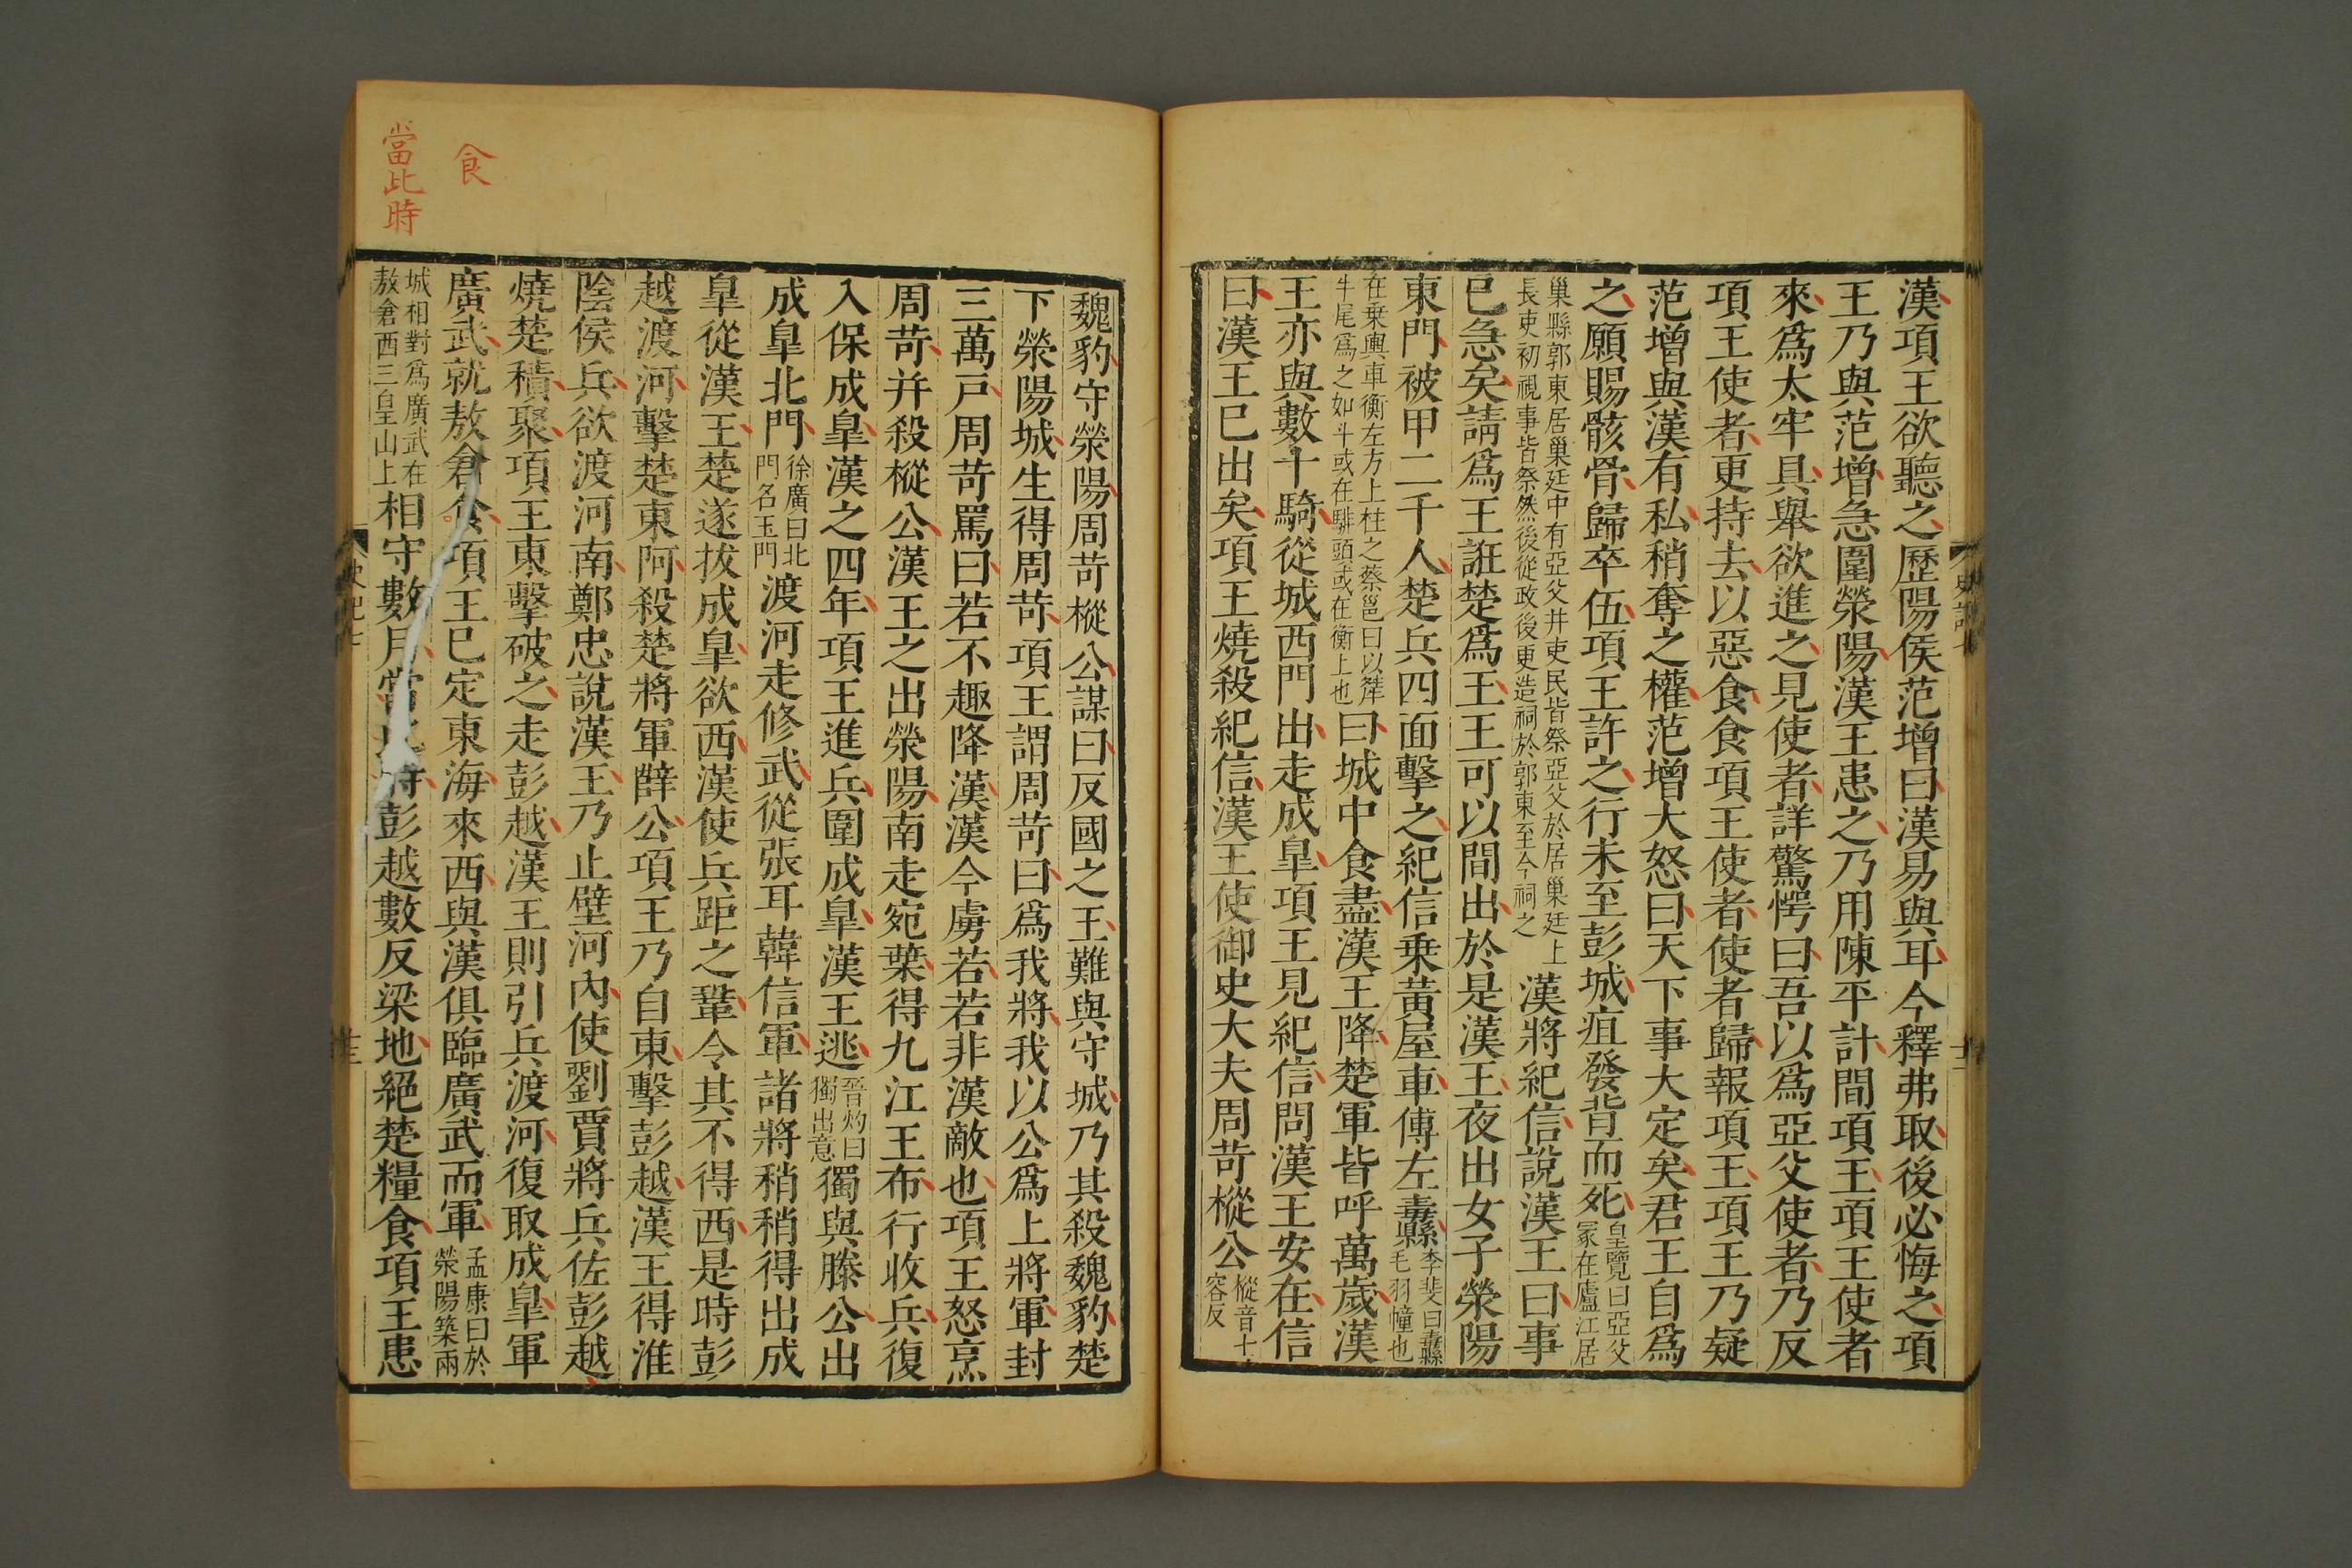 漢項王欲聽之歷陽侯范增曰漢易與耳今釋弗取後必悔之項
王乃與范增急圍滎陽漢王患之乃用陳平計間項王項王使者
來爲太牢具舉欲進之見使者詳驚愕曰吾以爲亞父使者乃反
項王使者更持去以惡食食項王使者使者歸報項王項王乃疑
范增與漢有私稍奪之權范增大怒曰天下事大定矣君王自爲
之願賜骸骨歸卒伍項王許之行未至彭城疽發背而死
皇覽曰亞父
冢在廬江居
巢縣郭東居巢廷中有亞父井吏民皆祭亞父於居巢廷上
長吏初視事皆祭然後從政後更造祠於郭東至今祠之
漢將紀信說漢王曰事
已急矣請爲王誑楚爲王王可以間出於是漢王夜出女子滎陽
東門被甲二千人楚兵四面擊之紀信乗黃屋車傅左纛
李斐曰纛
毛羽幢也
在乗輿車衡左方上柱之蔡邕曰以犛
牛尾爲之如斗或在騑頭或在衡上也
曰城中食盡漢王降楚軍皆呼萬歲漢
王亦與數十騎從城西門出走成臯項王見紀信問漢王安在信
曰漢王已出矣項王燒殺紀信漢王使御史大夫周苛樅公
樅音十
容反
魏豹守滎陽周苛樅公謀曰反國之王難與守城乃其殺魏豹楚
下滎陽城生得周苛項王謂周苛曰爲我將我以公爲上將軍封
三萬戶周苛罵曰若不趣降漢漢今虜若若非漢敵也項王怒烹
周苛并殺樅公漢王之出滎陽南走宛葉得九江王布行收兵復
入保成臯漢之四年項王進兵圍成臯漢王逃
晉灼曰
獨出意
獨與滕公出
成臯北門
徐廣曰北
門名玉門
渡河走修武從張耳韓信軍諸將稍稍得出成
臯從漢王楚遂拔成臯欲西漢使兵距之鞏令其不得西是時彭
越渡河擊楚東阿殺楚將軍薛公項王乃自東擊彭越漢王得淮
陰侯兵欲渡河南鄭忠說漢王乃止壁河內使劉賈將兵佐彭越
燒楚積聚項王東擊破之走彭越漢王則引兵渡河復取成臯軍
廣武就敖倉食項王已定東海來西與漢俱臨廣武而軍
孟康曰於
滎陽築兩
城相對爲廣武在
敖倉西三皇山上
相守數月當此時彭越數反梁地絕楚糧食項王患
食
當此時
史記七